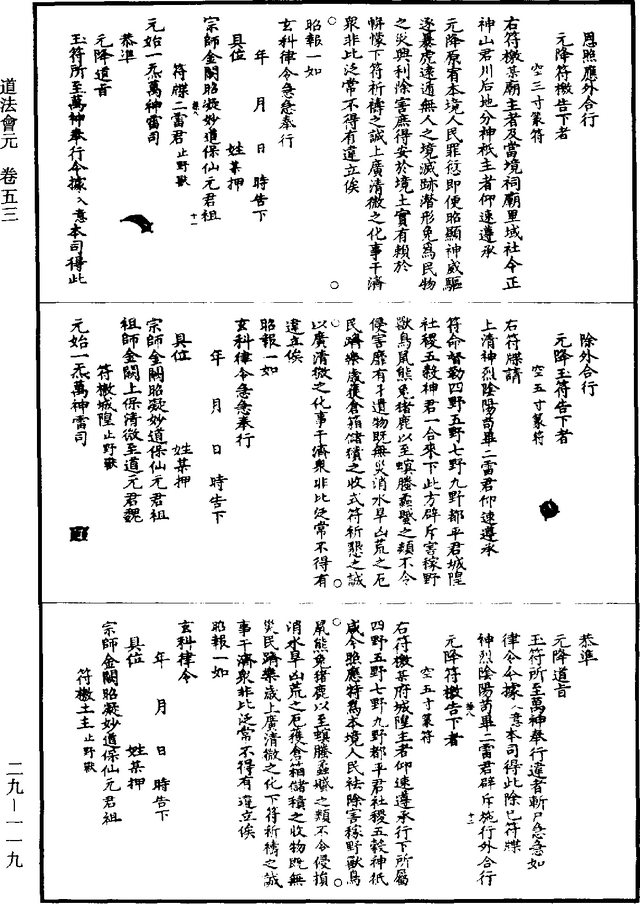 道法會元　卷五三
二九—一一九
恩照應外合行
元降符檄告下者
空三寸篆符
右符檄某廟主者及當境祠廟里域社令正
神山君川后地分神祇主者仰速遵承
元降原有本境人民罪愆即便昭顯神威驅
逐暴虎遠遁無人之境滅跡潛形免為民物
之災興利除害庶得安於境土實有賴於
帡幪下符祈禱之誠上廣清微之化事干濟
衆非比泛常不得有違立俟
昭報一如
玄科律令急急奉行
年　月　日　時告下
具位　姓某押
宗師金闕昭凝妙道保仙元君祖
符牒二雷君止野獸
元始一炁萬神雷司
恭準
元降道旨
玉符所至萬神奉行今據入意本司得此
除外合行
元降玉符告下者
空五寸篆符
右符牒請
上清神烈陰陽苟畢二雷君仰速遵承
符命督勒四野五野七野九野都平君城隍
社稷五穀神君一合來下此方辟斥害稼野
獸鳥鼠熊兔猪鹿以至螟螣蟊蠈之類不令
侵害靡有孑遺物既無災消水旱凶荒之厄
民躋樂歲獲倉箱儲積之收式符祈懇之誠
以廣清微之化事干濟衆非比泛常不得有
違立俟
昭報一如
玄科律令急急奉行
年　月　日　時告下
具位　姓某押
宗師金闕昭凝妙道保仙元君祖
祖師金闕上保清微至道元君魏
符檄城隍止野獸
元始一炁萬神雷司
恭準
元降道旨
玉符所至萬神奉行違者斬尸急急如
律令今據入意本司得此除已符牒
神烈陰陽苟畢二雷君辟斥施行外合行
元降符檄告下者
空五寸篆符
右符檄某府城隍主者仰速遵承行下所屬
四野五野七野九野都平君社稷五穀神祇
咸令照應特為本境人民祛除害稼野獸鳥
鼠熊兔猪鹿以至螟螣蟊蠈之類不令侵損
消水旱凶荒之厄獲倉箱儲積之收物既無
災民躋樂歲上廣清微之化下符祈禱之誠
事干濟衆非比泛常不得有違立俟
昭報一如
玄科律令
年　月　日　時告下
具位　姓某押
宗師金闕昭凝妙道保仙元君祖
符檄土主止野獸